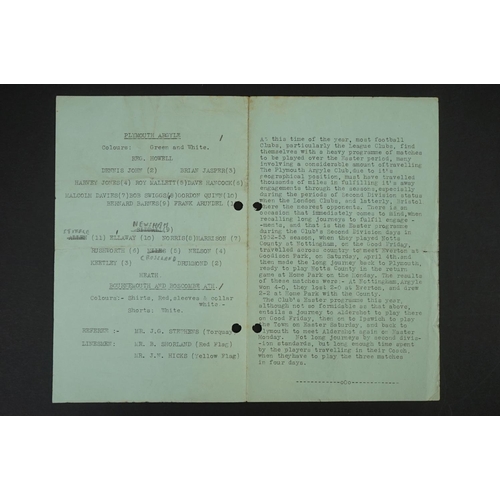 PLYMOUTH ARGYLE
Colours: Green and White.
REG. HOWELL
DENNIS JOHN (2) BRIAN JASPER(3)
BARNEY JONES(4) ROY MALLETT(5)DAVE HANCOCK(6)
MALCOLM DAVIES(7)DON SWIGGS(8)GORDON QUITT(10)
BERNARD BARNES(9) FRANK ARUNDEL(
NEWMAN
(11) ELLAWAY (10) NORRIS(8)HARRISON (7)
RUSHWORTH (6) (5) NELSON (4)
KEETLEY (3) DRUMMOND (2)
HEATH.
BOURNEMOUTH AND BOSCOMBE ATH.
Colours:- Shirts, Red, sleeves & collar
white -
Shorts: White.
REFEREE :- MR. J.G. STEPHENS (Torquay)
LINESMEN: MR. R. (Red Flag)
MR. J.W. HICKS (Yellow Flag)
At this time of the year, most football
Clubs, particularly the League Clubs, find
themselves with a heavy programme of matches
to be played over the Easter period, many
involving a considerable amount oftravelling
The Plymouth Argyle Club,due to it's
geographical position, must have travelled
thousands of miles in fulfilling it's away
engagements through the season,especially
during the periods of Second Division status
when the London Clubs, and latterly, Bristol
were the nearest opponents. There is an
occasion that immediately comes to mind,when
recalling long journeys to fulfil engage -
-ments, and that is the Easter programme
during the Club's Second Division days in
1952-53 season, when they played Notts
County at Nottingham, on the Good Friday,
travelled across country to meet Everton at
Goodison Park, on Saturday, April 4th.and
then made the long journey back to Plymouth,
ready to play Notts County in the return
game at Home Park on the Monday. The results
of these matches were - At Nottingham Argyle
won 4-0, they lost 2-0 at Everton, and drew
2-2 at Home Park with the County.
The Club's Easter programme this year,
although not so formidable as that above,
entails a journey to Aldershot to play there
on Good Friday, then on to Ipswich to play
the Town on Easter Saturday, and back to
Plymouth to meet Aldershot again on Easter
Monday. Not long journeys by second divis-
ion standards, but long enough time spent
by the players travelling in their Coach,
when theyhave to play the three matches
in four days.
-------------oOo-------------